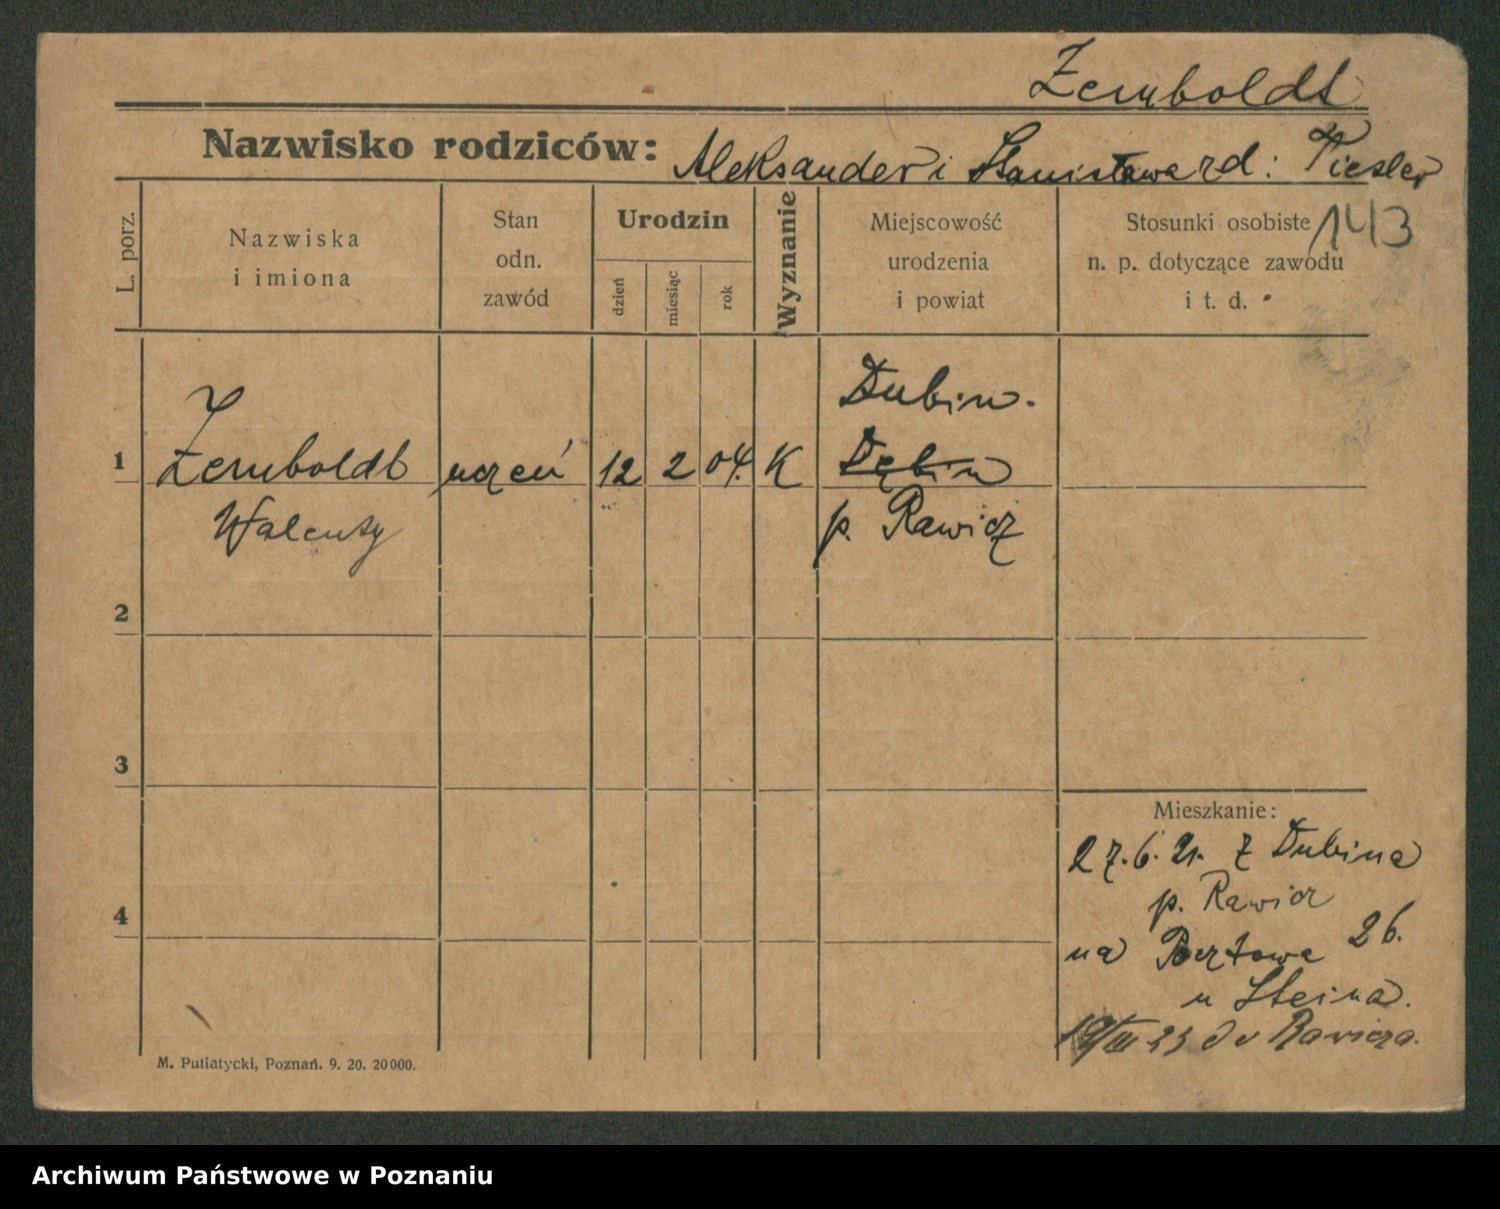 Zemboldt
Nazwisko rodziców: Aleksander i Stanisława rd: Tiesler
143
L. porz.
Nazwiska
i imiona
Stan
odn.
zawód
Urodzin
dzień
miesiąc
rok
Wyznanie
Miejscowość
urodzenia
i powiat
Stosunki osobiste
n. p. dotyczące zawodu
i t. d.
Z
Dubin.
1 Zemboldt uczeń 12 2 04. K Dębin
Walenty p. Rawicz
2
3
4
Mieszkanie:
27.6.21. z Dubina
p. Rawicz
na Pocztowe 26.
u Steina.
19/III 23 do Rawicza.
M. Putiatycki, Poznań. 9. 20. 20000.
Archiwum Państwowe w Poznaniu